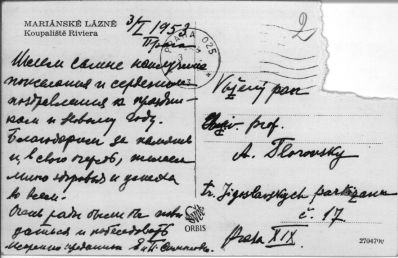 MARIÁNSKÉ LÁZNĚ
Koupaliště Riviera
3/I 1953
Прага
PRAHA 025
2
Шлем самые наилучшие
пожелания и сердечные
поздравления к праздни-
кам и Новому Году.
Благодарим за память
и, в свою очередь, желаем
много здоровья и успеха
во всем.
Очень рады были бы пови-
даться и побеседовать
Vážený pan
prof.
A. Florovsky
tř. Jugoslavských partizanu
č. 17
Praha XIX
ORBIS